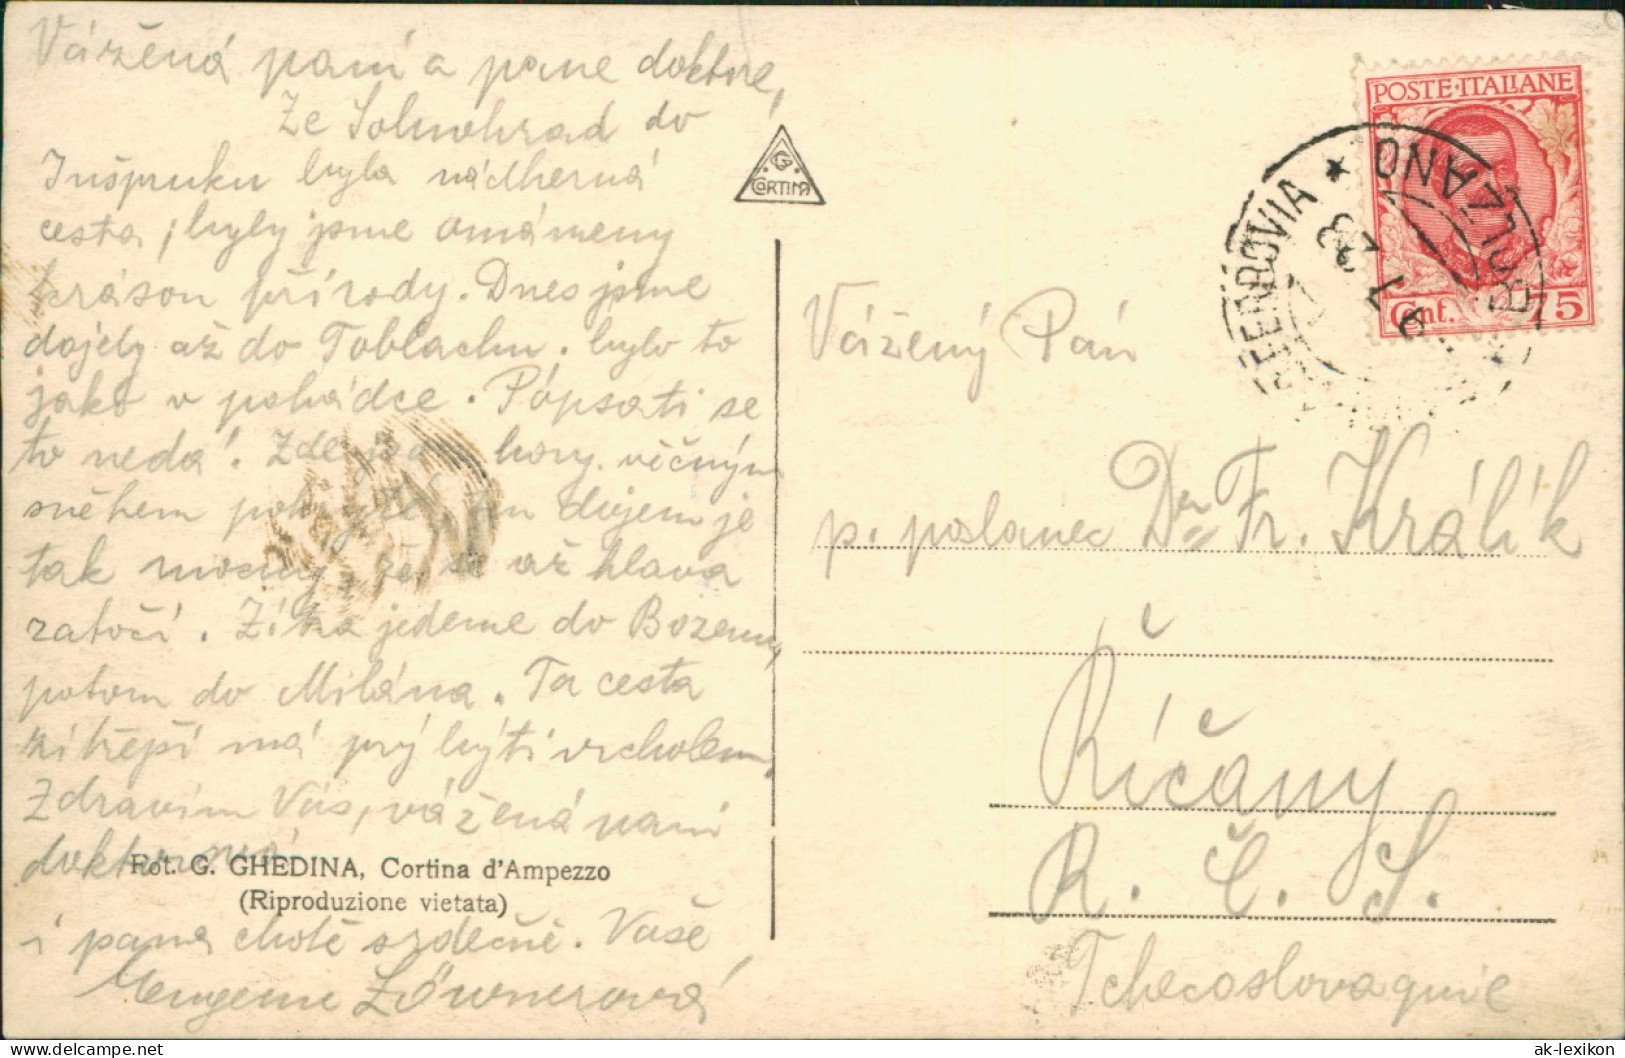 Vážená paní a pane doktore,
Ze Solnohrad do
Inšpruku byla nádherná
cesta, byly jsme omámeny
krásou přírody. Dnes jsme
dojely až do Toblachu. bylo to
jako v pohádce. Popsati se
to nedá! Zde jsou hory věčným
sněhem pokryté, ten dojem je
tak mocný, že se až hlava
zatočí. Zítra jedeme do Bozenu,
potom do Milána. Ta cesta
zítřejší má prý býti vrcholem.
Zdravím Vás, vážená paní
doktorová
i pana chotě srdečně. Vaše
Löwnerová
Fot. G. GHEDINA, Cortina d'Ampezzo
(Riproduzione vietata)
G
CORTINA
POSTE·ITALIANE
Cent. 75
FERROVIA * BOLZANO
Vážený Pán
p. poslanec Dr Fr. Králík
Říčany
R. Č. S.
Tchecoslovaquie
Delcampe.net
ak-lexikon